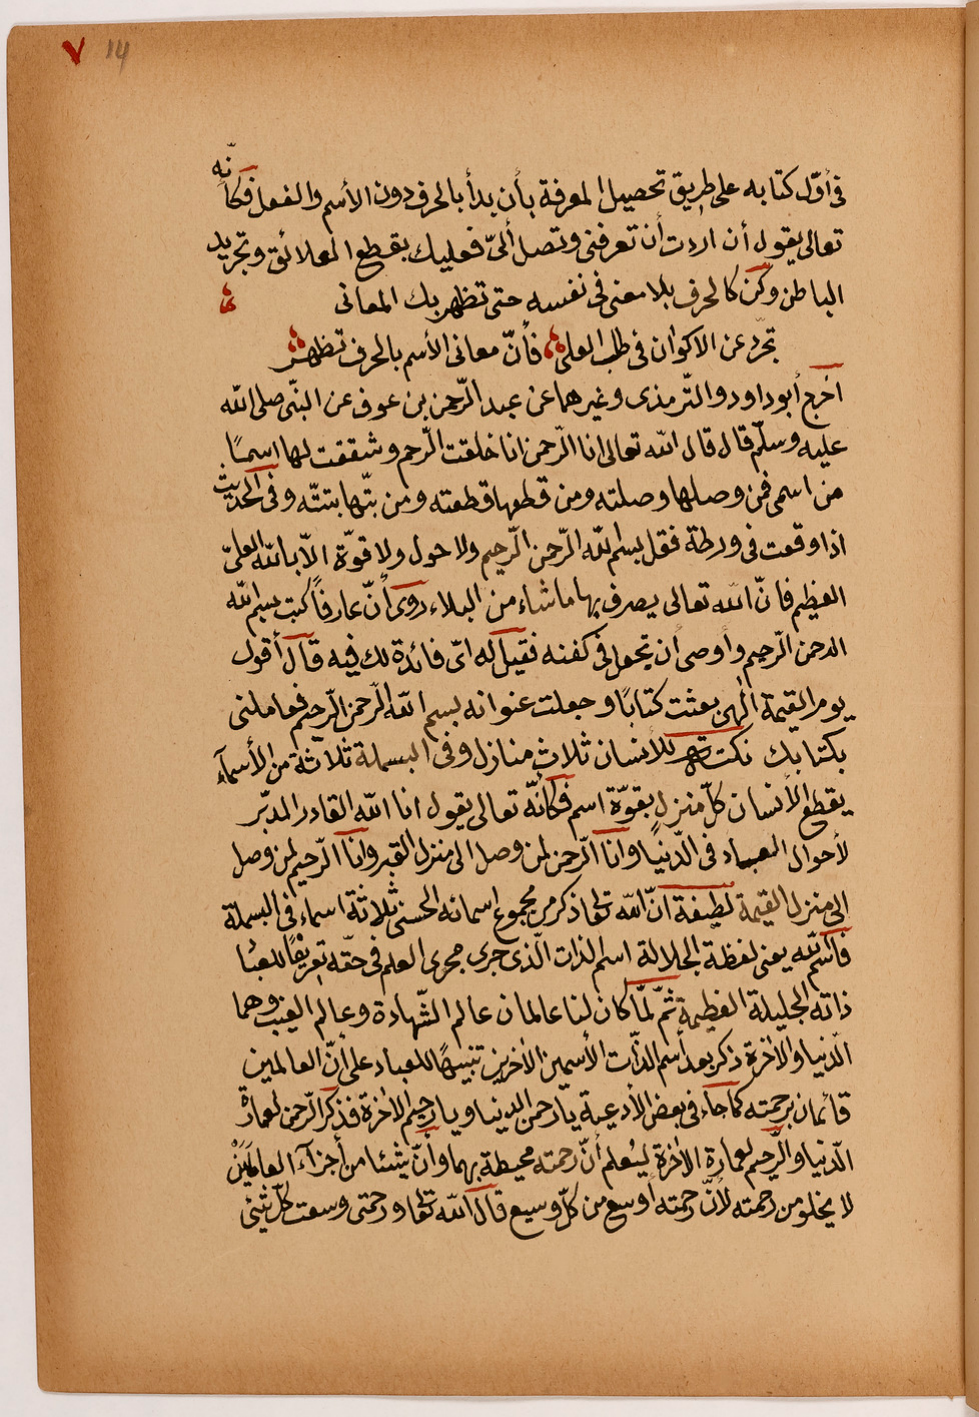 ٧ 14
فى أوّل كتابه على طريق تحصيل المعرفة بأن بدأ بالحرف دون الأسم والفعل فكأنّه
تعالى يقول أن اردت أن تعرفنى وتصل ألىّ فعليك بقطع العلائق وتجريد
الباطن وكن كالحرف بلا معنى فى نفسه حتى تظهر بك المعانى
تجرّد عن الاكوان فى طلب العلى فأنّ معانى الأسم بالحرف تظهر
اخرج أبو داود والتّرمذى وغيرهما عن عبد الرّحمن بن عوف عن النبّى صلى الله
عليه وسلّم قال قال الله تعالى انا الرّحمن انا خلقت الرّحم وشققت لها اسمًا
من اسمى فمن وصلها وصلته ومن قطعها قطعته ومن بتّها بتتّه وفى الحديث
اذا وقعت فى ورطة فقل بسم الله الرّحمن الرّحيم ولا حول ولا قوّة الاّ بالله العلىّ
العظيم فانّ الله تعالى يصرف بها ما شاء من البلاء روى أنّ عارفاً كتب بسم الله
الرحمن الرّحيم وأوصى ان يجعل فى كفنه فقيل له اىّ فائدة لك فيه قال أقول
يوم القيمة الٓهى بعثت كتابًا وجعلت عنوانه بسم الله الرّحمن الرّحيم فعاملنى
بكتابك نكت للأنسان ثلاث منازل وفى البسملة ثلاثة من الأسمآء
يقطع الأنسان كلّ منزل بقوّة اسم فكأنّه تعالى يقول انا الله القادر المدبّر
لأحوال العباد فى الدّنيا وانا الرّحمن لمن وصل الى منزل القبر وانا الرّحيم لمن وصل
الى منزل القيمة لطيفة انّ الله تعا ذكر من مجموع اسمائه الحسنى ثلاثة اسماء فى البسملة
فاسم الله يعنى لفظة الجلالة اسم الذات الّذى جرى مجرى العلم فى حقّه تعريفًا للعبا
ذاته الجليلة العظيمة ثمّ لمّا كان لنا عالمان عالم الشّهادة وعالم الغيب وهما
الدّنيا والاخرة ذكر بعد أسم الذّات الأسمين الأخرين تنبيهًا للعباد على أنّ العالمين
قائمان برحمته كما جاء فى بعض الأدعية يا رحمن الدنيا ويا رحيم الاخرة فذكر الرّحمن لعمارة
الدّنيا والرّحيم لعمارة الاخرة ليُعلم أنّ رحمته محيطة بهما وأنّ شيئا من أجزآء العالمَين
لا يخلو من رحمته لأنّ رحمته أوسع من كلّ وسيع قال الله تعا ورحمتى وسعت كلّ شئ